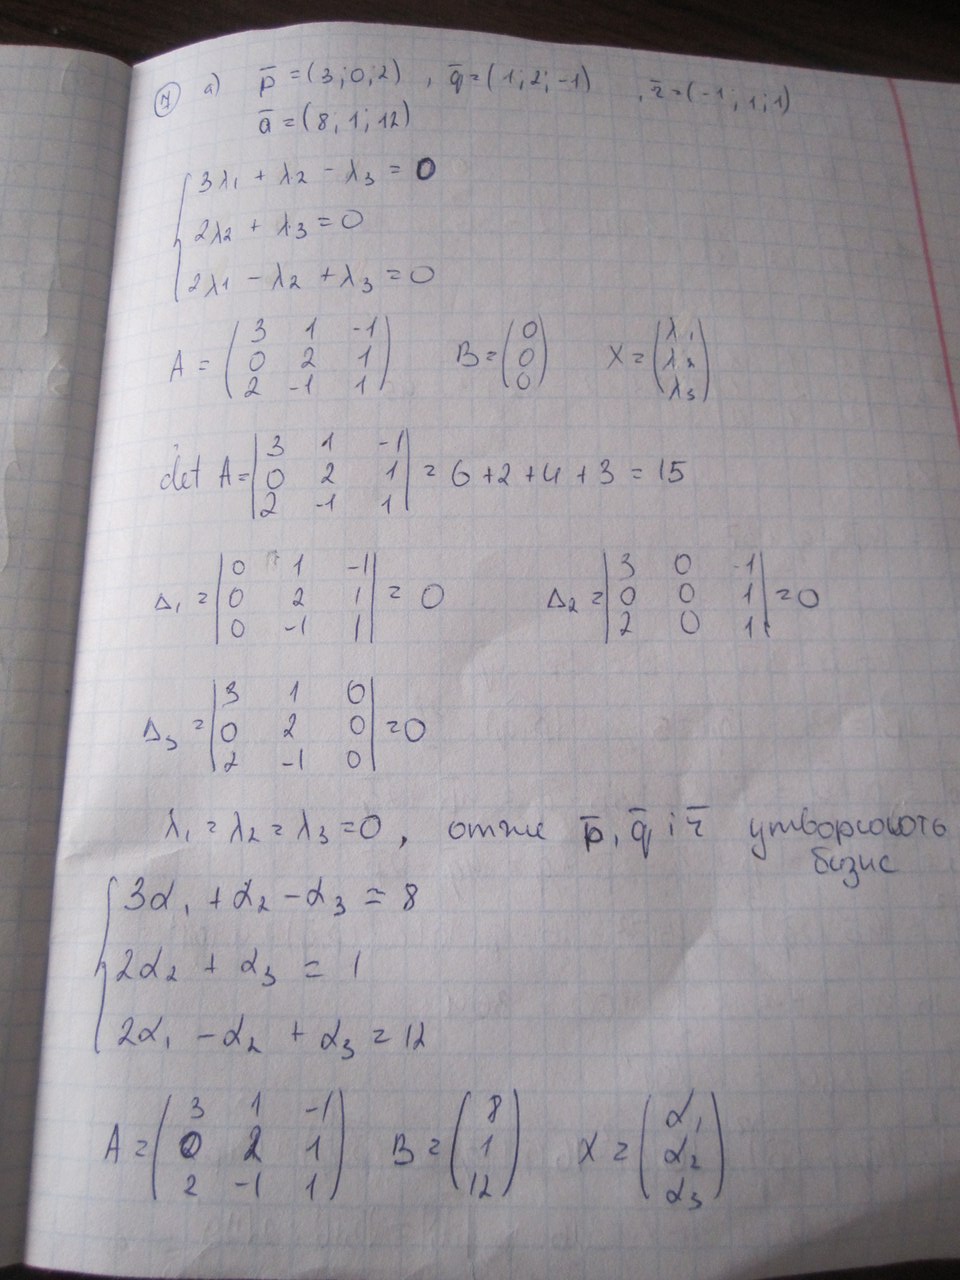 7 а) p̄ = (3; 0; 2) , q̄ = (1; 2; -1) , r̄ = (-1; 1; 1)
ā = (8; 1; 12)
3λ₁ + λ₂ - λ₃ = 0
2λ₂ + λ₃ = 0
2λ1 - λ₂ + λ₃ = 0
A = ( 3 1 -1 ; 0 2 1 ; 2 -1 1 ) B = ( 0 ; 0 ; 0 ) X = ( λ₁ ; λ₂ ; λ₃ )
det A = | 3 1 -1 ; 0 2 1 ; 2 -1 1 | = 6 + 2 + 4 + 3 = 15
Δ₁ = | 0 1 -1 ; 0 2 1 ; 0 -1 1 | = 0 Δ₂ = | 3 0 -1 ; 0 0 1 ; 2 0 1 | = 0
Δ₃ = | 3 1 0 ; 0 2 0 ; 2 -1 0 | = 0
λ₁ = λ₂ = λ₃ = 0 , отже p̄, q̄ і r̄ утворюють
базис
3α₁ + α₂ - α₃ = 8
2α₂ + α₃ = 1
2α₁ - α₂ + α₃ = 12
A = ( 3 1 -1 ; 0 2 1 ; 2 -1 1 ) B = ( 8 ; 1 ; 12 ) X = ( α₁ ; α₂ ; α₃ )